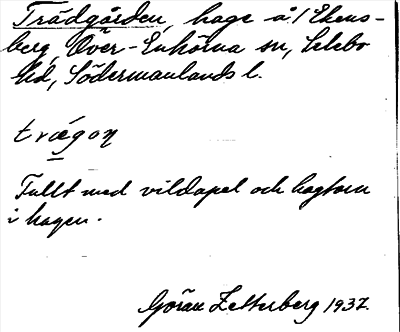 Trädgården, hage å / Ekens-
berg, Över-Enhörna sn, Selebo
hd, Södermanlands l.
trægon
Fullt med vildapel och hagtorn
i hagen.
Göran Zetterberg 1937.